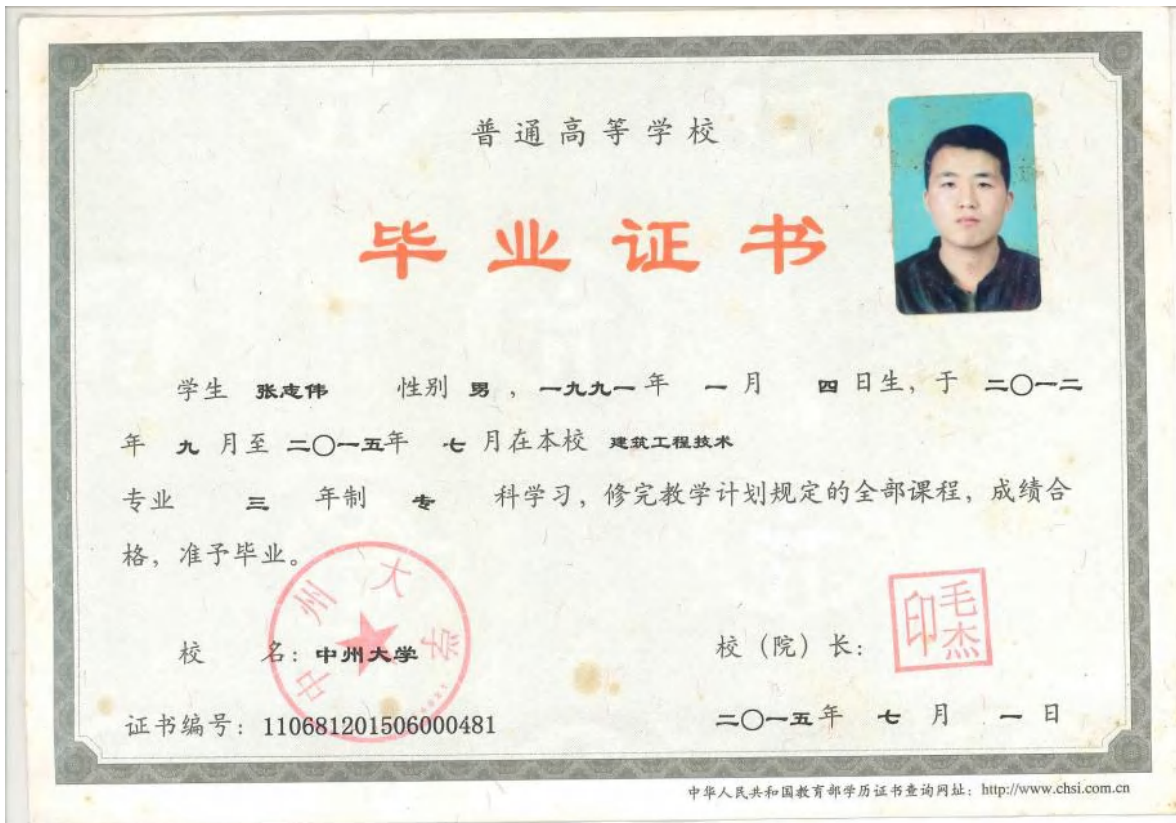 普通高等学校
毕业证书
学生 张志伟 性别 男 ，一九九一 年 一 月 四 日生，于 二〇一二
年 九 月至 二〇一五年 七 月在本校 建筑工程技术
专业 三 年制 专 科学习，修完教学计划规定的全部课程，成绩合
格，准予毕业。
中州大学
校 名：中州大学
校（院）长：
毛杰印
证书编号：110681201506000481
二〇一五年 七 月 一 日
中华人民共和国教育部学历证书查询网址：http://www.chsi.com.cn